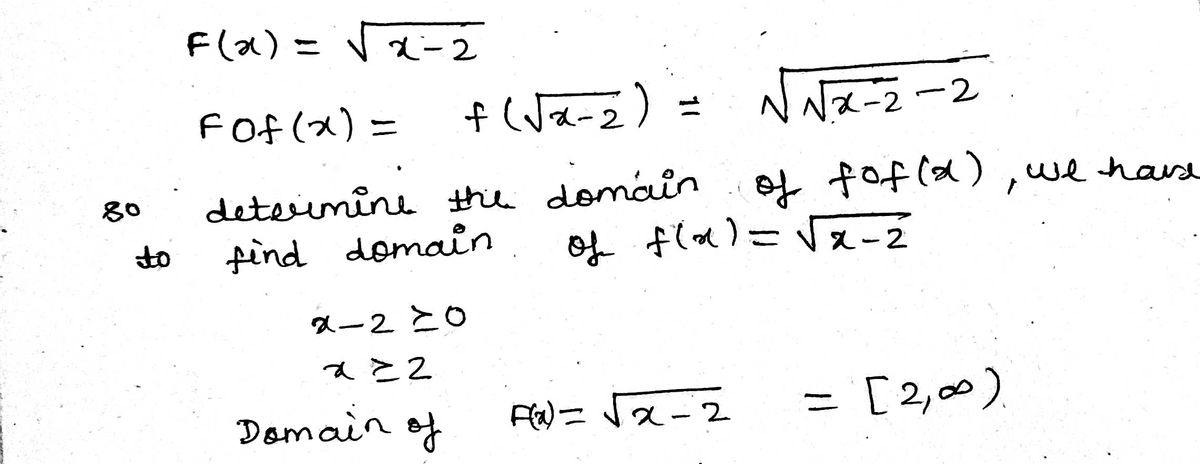 F(x) = √x-2
FOf(x) = f(√x-2) = √√x-2 -2
so determine the domain of fof(x), we have
to find domain of f(x) = √x-2
x-2 ≥0
x ≥2
Domain of F(x)= √x-2 = [2,∞)